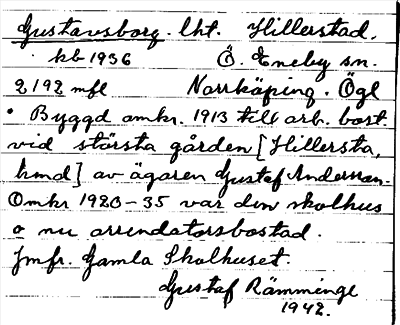 Gustavsborg. lht. Hillerstad.
kb 1936 Ö. Eneby sn.
2192 mfl Norrköping. Ögl
Byggd omkr. 1913 till arb. bost.
vid största gården [Hillersta,
hmd] av ägaren Gustaf Andersson.
Omkr 1920-35 var den skolhus
o nu arrendatorsbostad.
Jmfr. Gamla Skolhuset.
Gustaf Rämminge
1942.